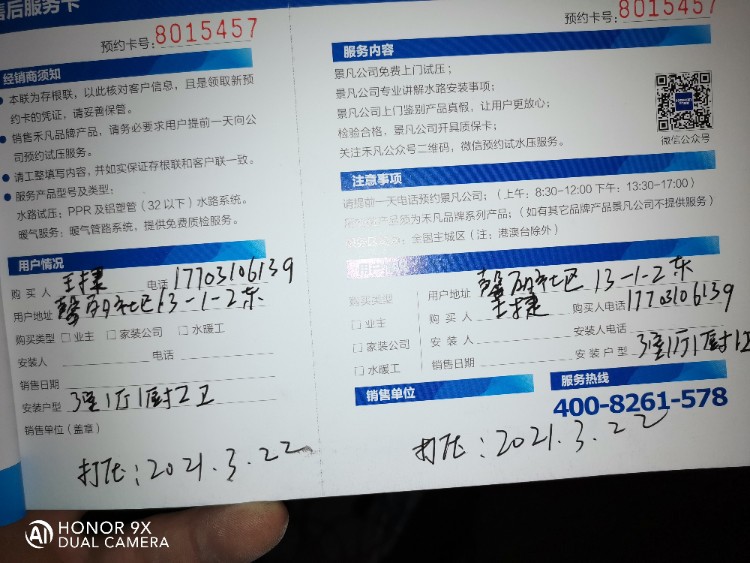 售后服务卡
预约卡号:8015457
经销商须知
本联为存根联，以此核对客户信息，且是领取新预
约卡的凭证，请妥善保管。
销售禾凡品牌产品，请务必要求用户提前一天向公
司预约试压服务。
请工整填写内容，并如实保证存根联和客户联一致。
服务产品型号及类型：
水路试压：PPR及铝塑管（32以下）水路系统。
暖气服务：暖气管路系统，提供免费质检服务。
用户情况
购买人 王捷 电话 17703106139
用户地址 馨丽社区13-1-2东
购买类型 □业主 □家装公司 □水暖工
安装人 电话
销售日期
安装户型 3室1厅1厨2卫
销售单位（盖章）
打压：2021.3.22
预约卡号:8015457
服务内容
景凡公司免费上门试压；
景凡公司专业讲解水路安装事项；
景凡公司上门鉴别产品真假，让用户更放心；
检验合格，景凡公司开具质保卡；
关注禾凡公众号二维码，微信预约试水压服务。
微信公众号
注意事项
请提前一天电话预约景凡公司；（上午：8:30-12:00 下午：13:30-17:00）
产品须为禾凡品牌系列产品；（如有其它品牌产品景凡公司不提供服务）
全国主城区（注：港澳台除外）
用户
购买类型
□ 业主
□ 家装公司
□ 水暖工
用户地址 馨丽社区 13-1-2东
购买人 王捷 购买人电话 17703106139
安装人 安装人电话
销售日期 安装户型 3室1厅1厨1卫
销售单位
服务热线
400-8261-578
打压：2021.3.22
HONOR 9X
DUAL CAMERA